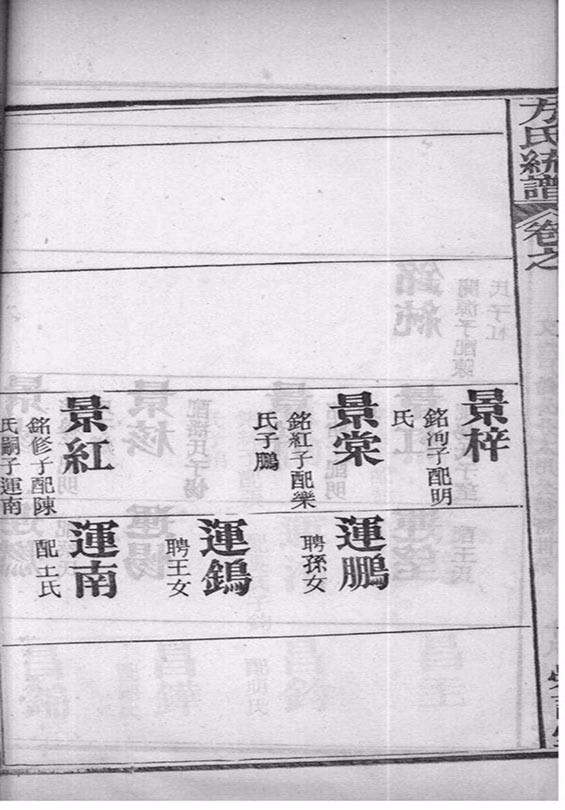 方氏統譜
卷之
景梓
銘洵子配明
氏
景棠
銘紅子配樂
氏子鵬
景紅
銘修子配陳
氏嗣子運南
運鵬
聘孫女
運鴻
聘王女
運南
配王氏